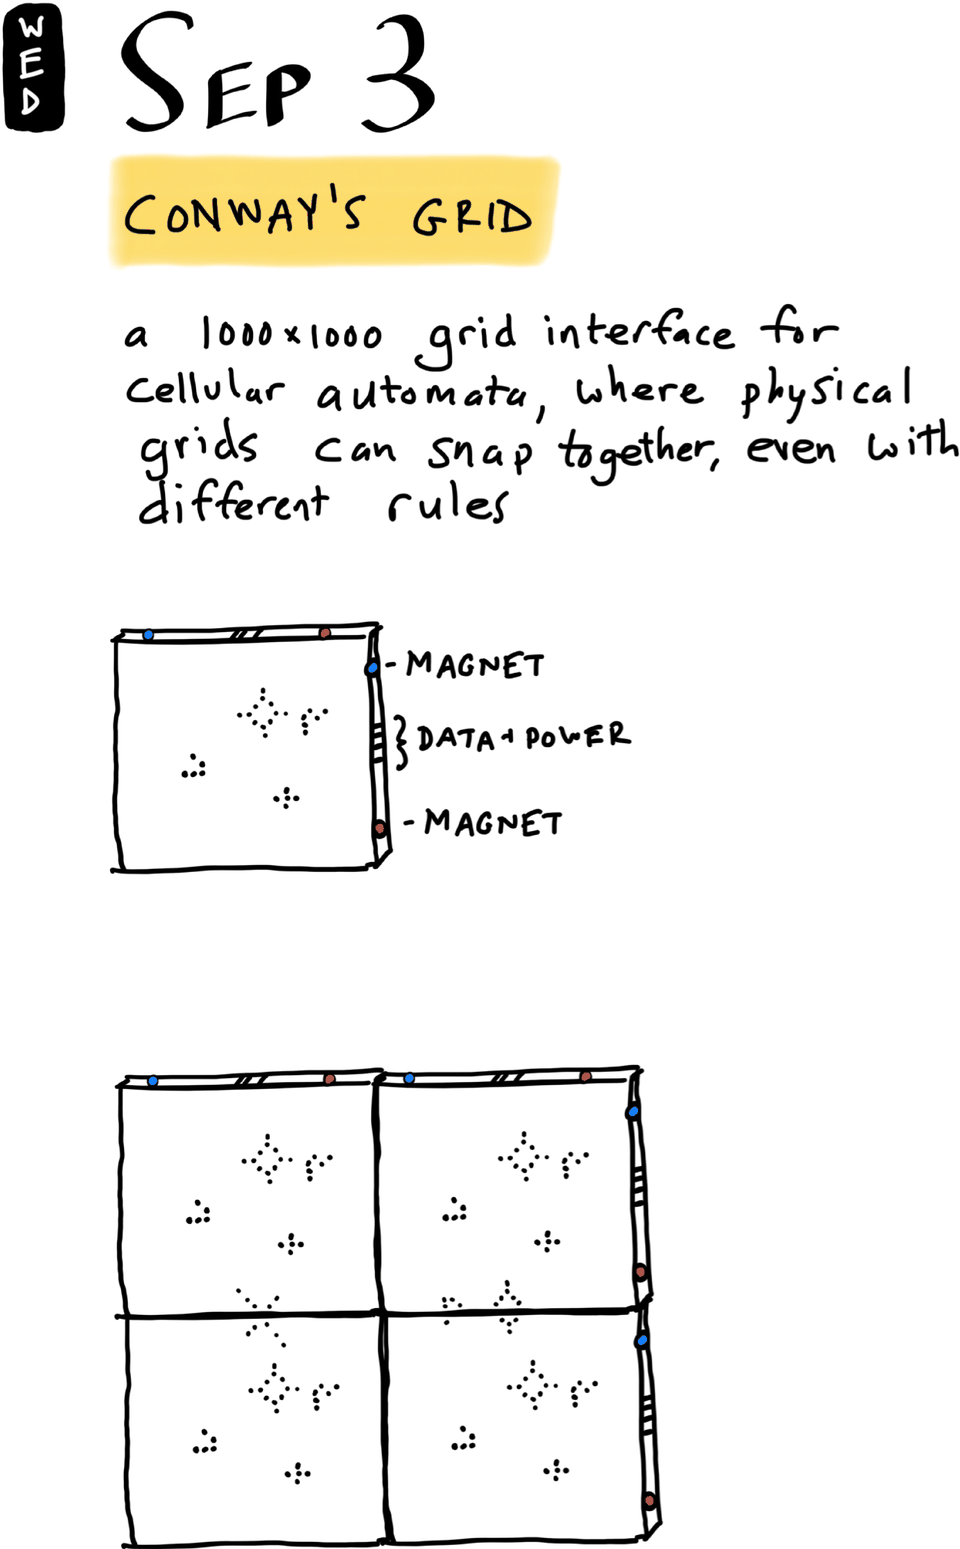 WED
SEP 3
CONWAY'S GRID
a 1000×1000 grid interface for
cellular automata, where physical
grids can snap together, even with
different rules
- MAGNET
} DATA + POWER
- MAGNET